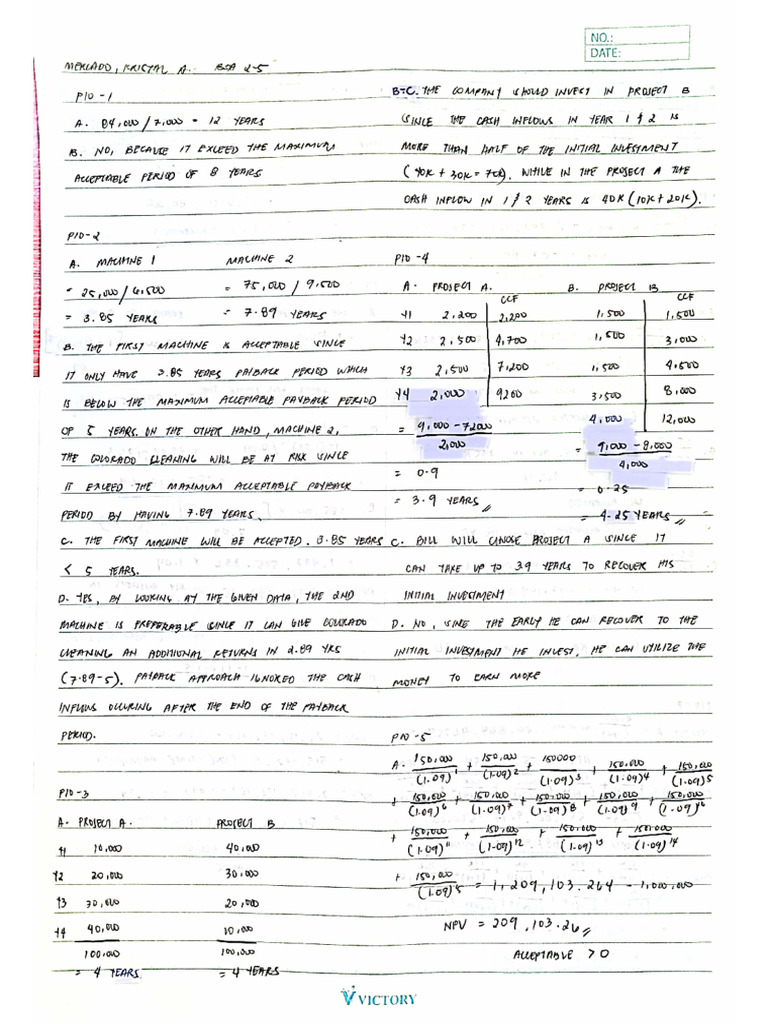 NO.:
DATE:
MERCADO, KRISTAL A. BSA 2-5
P10-1
A. 84,000/7,000 = 12 YEARS
B. NO, BECAUSE IT EXCEED THE MAXIMUM
ACCEPTABLE PERIOD OF 8 YEARS
P10-2
A. MACHINE 1 MACHINE 2
= 25,000/6,500 = 75,000/9,500
= 3.85 YEARS = 7.89 YEARS
B. THE FIRST MACHINE IS ACCEPTABLE SINCE
IT ONLY HAVE 3.85 YEARS PAYBACK PERIOD WHICH
IS BELOW THE MAXIMUM ACCEPTABLE PAYBACK PERIOD
OF 5 YEARS. ON THE OTHER HAND, MACHINE 2,
THE COLORADO CLEANING WILL BE AT RISK SINCE
IT EXCEED THE MAXIMUM ACCEPTABLE PAYBACK
PERIOD BY HAVING 7.89 YEARS.
C. THE FIRST MACHINE WILL BE ACCEPTED. 3.85 YEARS
< 5 YEARS.
D. YES, BY LOOKING AT THE GIVEN DATA, THE 2ND
MACHINE IS PREFERABLE SINCE IT CAN GIVE COLORADO
CLEANING AN ADDITIONAL RETURNS IN 2.89 YRS
(7.89-5). PAYBACK APPROACH IGNORED THE CASH
INFLOWS OCCURING AFTER THE END OF THE PAYBACK
PERIOD.
P10-3
A. PROJECT A. PROJECT B
Y1 10,000 40,000
Y2 20,000 30,000
Y3 30,000 20,000
Y4 40,000 10,000
100,000 100,000
= 4 YEARS = 4 YEARS
B-C. THE COMPANY SHOULD INVEST IN PROJECT B
SINCE THE CASH INFLOWS IN YEAR 1 & 2 IS
MORE THAN HALF OF THE INITIAL INVESTMENT
(40K + 30K = 70K). WHILE IN THE PROJECT A THE
CASH INFLOW IN 1 & 2 YEARS IS 40K (10K + 20K).
P10-4
A. PROJECT A. B. PROJECT B
CCF CCF
Y1 2,200 2,200 1,500 1,500
Y2 2,500 4,700 1,500 3,000
Y3 2,500 7,200 1,500 4,500
Y4 2,000 9200 3,500 8,000
4,000 12,000
= 9,000 - 7200 / 2,000 = 9,000 - 8,000 / 4,000
= 0.9 = 0.25
= 3.9 YEARS = 4.25 YEARS
C. BILL WILL CHOSE PROJECT A SINCE IT
CAN TAKE UP TO 3.9 YEARS TO RECOVER HIS
INITIAL INVESTMENT
D. NO, SINE THE EARLY HE CAN RECOVER TO THE
INITIAL INVESTMENT HE INVEST, HE CAN UTILIZE THE
MONEY TO EARN MORE
P10-5
A. 150,000/(1.09)^1 + 150,000/(1.09)^2 + 150000/(1.09)^3 + 150,000/(1.09)^4 + 150,000/(1.09)^5
+ 150,000/(1.09)^6 + 150,000/(1.09)^7 + 150,000/(1.09)^8 + 150,000/(1.09)^9 + 150,000/(1.09)^10
+ 150,000/(1.09)^11 + 150,000/(1.09)^12 + 150,000/(1.09)^13 + 150,000/(1.09)^14
+ 150,000/(1.09)^15 = 1,209,103.264 - 1,000,000
NPV = 209,103.26
ACCEPTABLE > 0
VICTORY